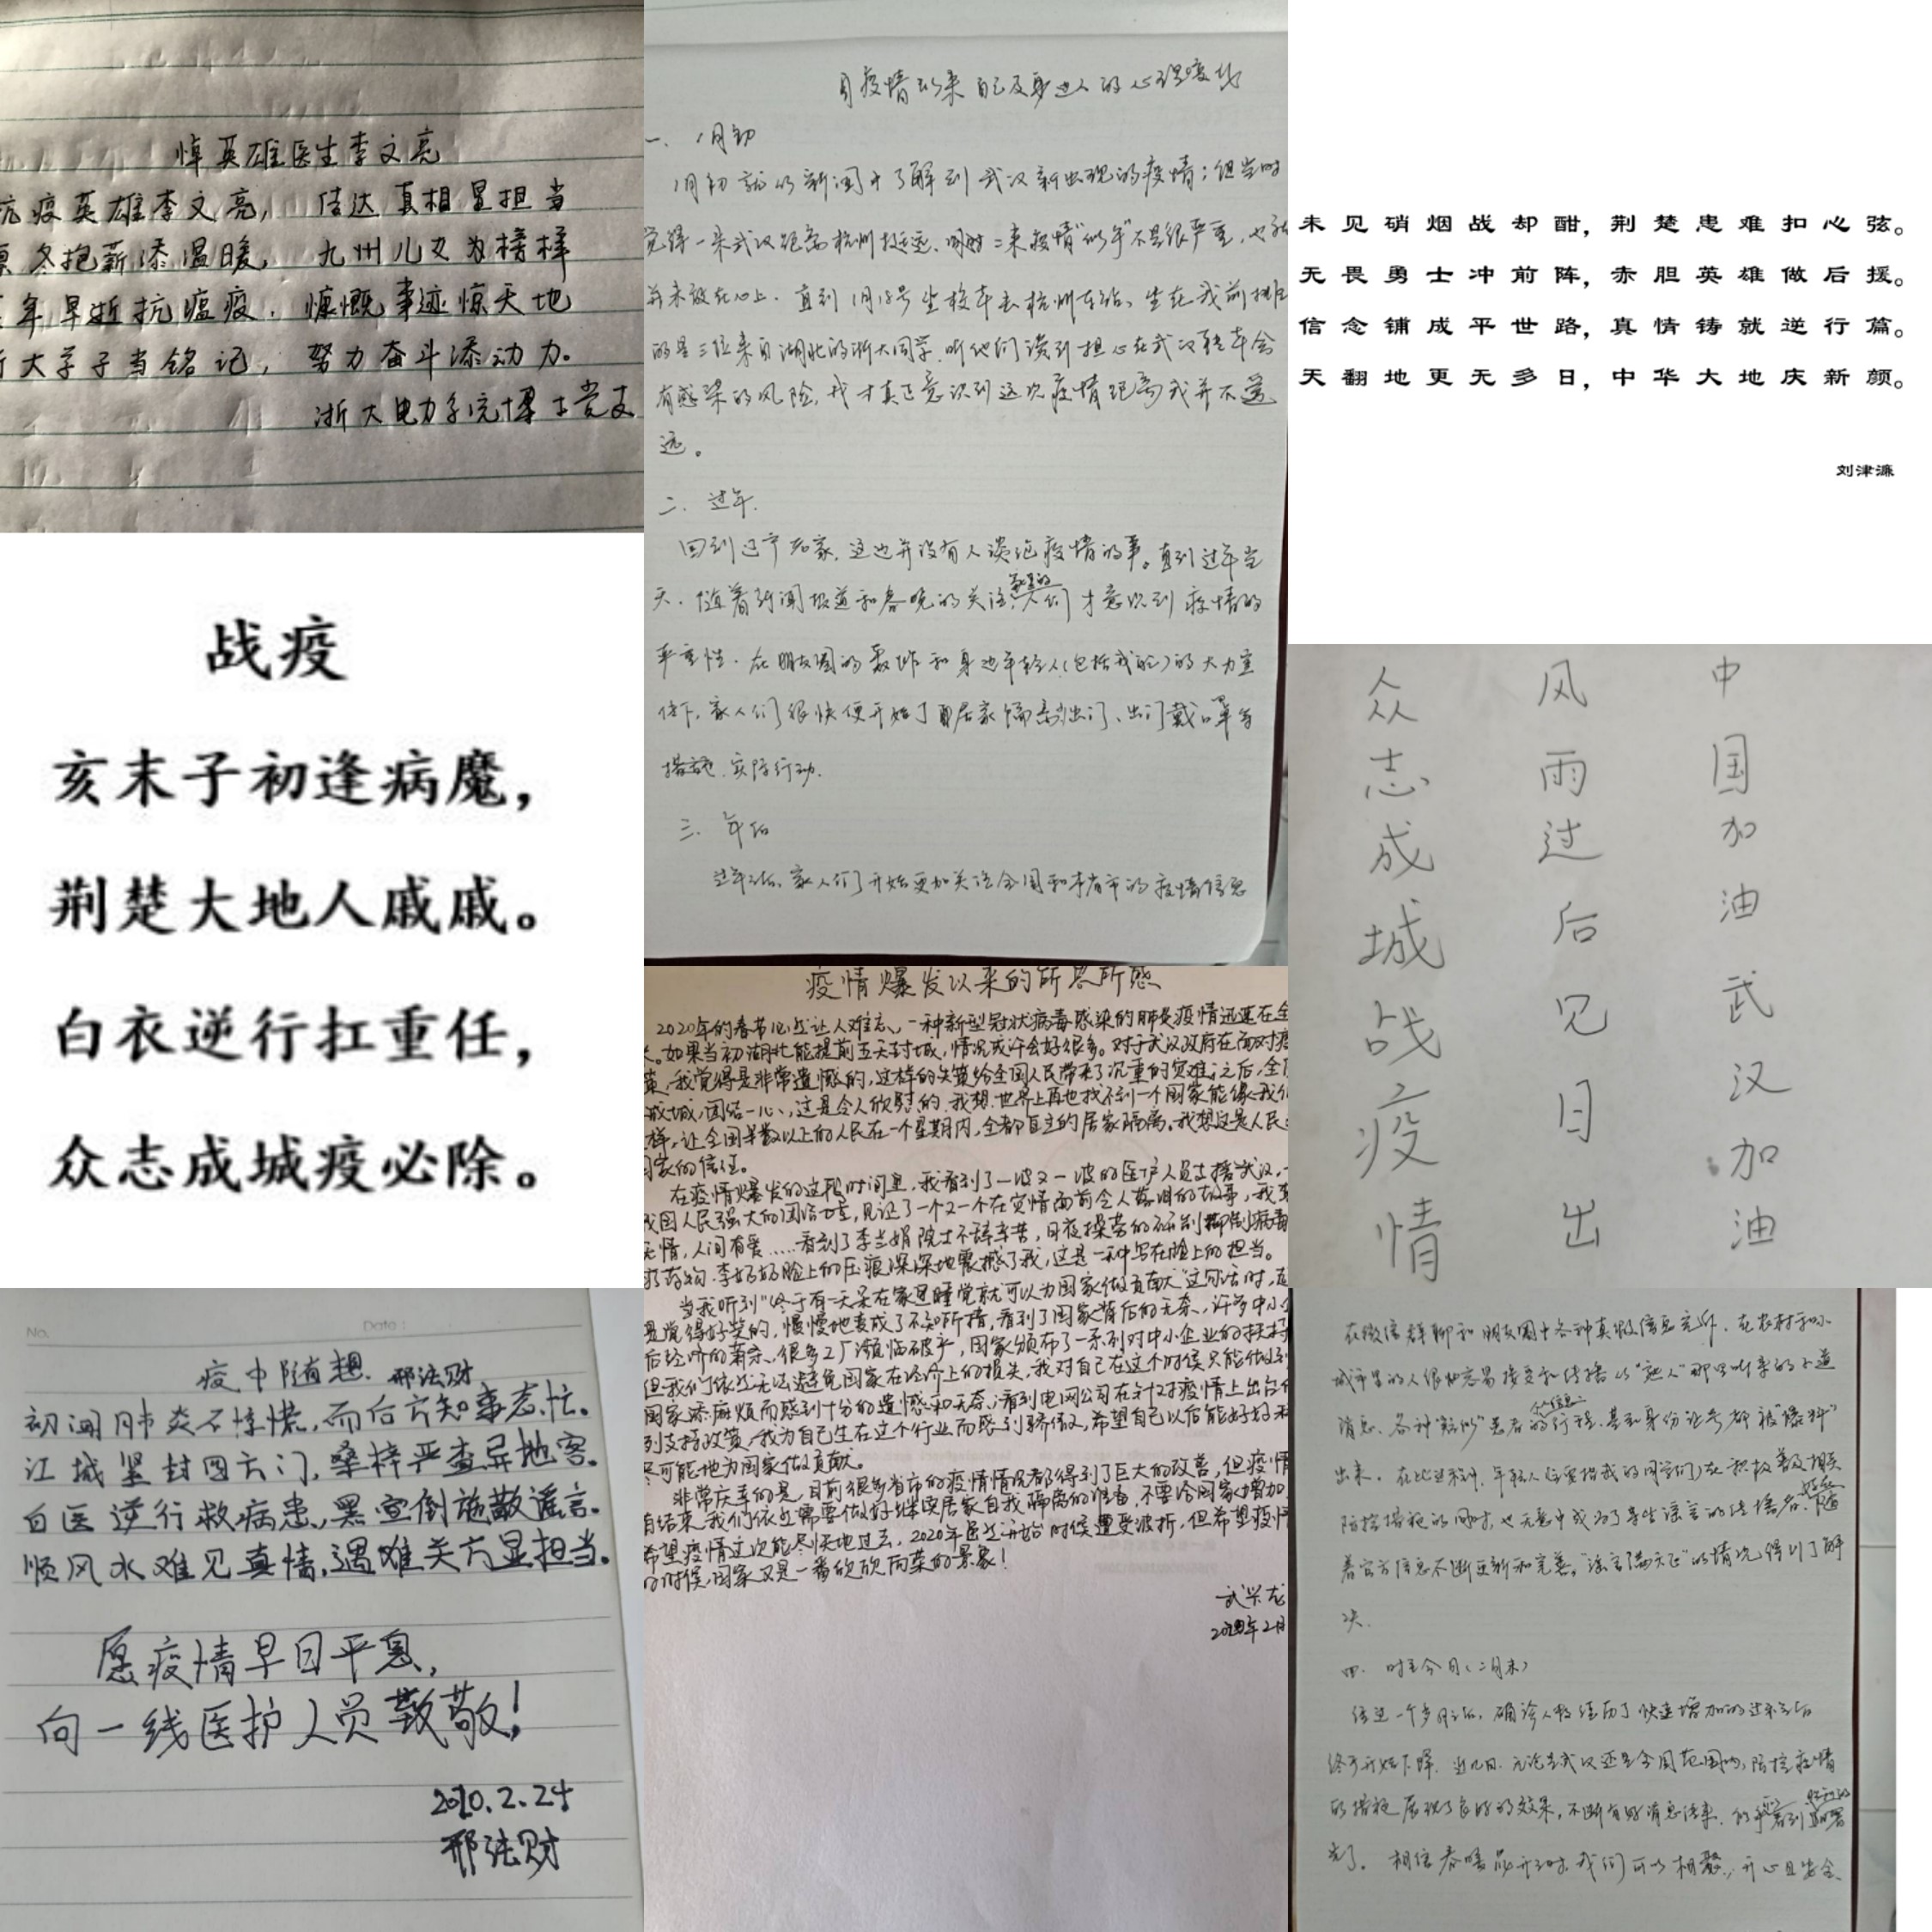 悼英雄医生李文亮
抗疫英雄李文亮， 传达真相显担当
冬抱薪添温暖， 九州儿女为榜样
年早逝抗瘟疫， 慷慨事迹惊天地
大学子当铭记， 努力奋斗添动力。
浙大电力系统博士党支
自疫情以来自己及身边人的心理变化
一、1月初
1月初就从新闻中了解到武汉新出现的疫情；但当时
觉得一来武汉距离杭州挺远、同时二来疫情“似乎”不是很严重，也就
并未放在心上。直到1月18号坐校车去杭州东站、坐在我前排
的是三位来自湖北的浙大同学，听他们谈到担心在武汉转车会
有感染的风险，我才真正意识到这次疫情距离我并不遥
远。
二、过年.
回到辽宁老家，这边并没有人谈论疫情的事。直到过年当
天，随着新闻报道和春晚的关注，家里的人们才意识到疫情的
严重性。在朋友圈的轰炸和身边年轻人（包括我）的大力宣
传下，家人们很快便开始了居家隔离、出门戴口罩等
措施、实际行动.
三、年后
过年之后，家人们开始更加关注全国和本省市的疫情信息
未见硝烟战却酣，荆楚患难扣心弦。
无畏勇士冲前阵，赤胆英雄做后援。
信念铺成平世路，真情铸就逆行篇。
天翻地更无多日，中华大地庆新颜。
刘津濂
战疫
亥末子初逢病魔，
荆楚大地人戚戚。
白衣逆行扛重任，
众志成城疫必除。
中国加油武汉加油
风雨过后见日出
众志成城战疫情
疫情爆发以来的所思所感
2020年的春节也许让人难忘，一种新型冠状病毒感染的肺炎疫情迅速在全
。如果当初湖北能提前五天封城，情况或许会好很多。对于武汉政府在面对疫
策，我觉得是非常遗憾的，这样的失策给全国人民带来了沉重的灾难；之后，全国
成城，团结一心，这是令人欣慰的，我想，世界上再也找不到一个国家能像我们
样，让全国半数以上的人民在一个星期内，全都自主的居家隔离。我想这是人民
国家的信任。
在疫情爆发的这段时间里，我看到了一波又一波的医护人员支援武汉，
我国人民强大的团结力量，见证了一个又一个在灾情面前令人落泪的故事，我
无情，人间有爱……看到了李兰娟院士不辞辛苦，日夜操劳的研制抑制病毒
的药物，李奶奶脸上的压痕深深地震撼了我，这是一种写在脸上的担当。
当我听到“终于有一天呆在家里睡觉就可以为国家做贡献”这句话时，
是觉得好笑的，慢慢地变成了不知所措，看到了国家背后的无奈，许多中小企
后经济的萧条，很多工厂濒临破产，国家颁布了一系列对中小企业的扶持
但我们依然无法避免国家在经济上的损失，我对自己在这个时候只能做到
国家添麻烦而感到十分的遗憾和无奈；看到电网公司在针对疫情上出台
列支持政策，我为自己生在这个行业而感到骄傲，希望自己以后能好好
尽可能地为国家做贡献。
非常庆幸的是，目前很多省市的疫情情况都得到了巨大的改善，但疫情
有结束，我们依然需要做好继续居家自我隔离的准备，不要给国家增加
希望疫情这次能尽快地过去，2020年虽然开始时候遭受波折，但希望疫情
的时候，国家又是一番欣欣向荣的景象！
武兴龙
2020年2月
No. Date：
疫中随想 邢法财
初闻肺炎不惊慌，而后方知事态忙。
江城坚封四方门，桑梓严查异地客。
白医逆行救病患，黑官倒施散谣言。
顺风水难见真情，遇难关方显担当。
愿疫情早日平息，
向一线医护人员致敬！
2020.2.24
邢法财
在微信群聊和朋友圈中各种真假信息充斥，在农村和小
城市里的人很容易接受和传播从“熟人”那里听来的小道
消息、各种“疑似”患者的个人信息、行程、甚至身份证号都被“爆料”
出来。在此过程中，年轻人（主要指我的同学们）在积极普及相关
防控措施的同时，也无意中成为了某些谣言的传播者。好在随
着官方信息不断更新和完善，“谣言满天飞”的情况得到了解
决.
四、时至今日（二月末）
经过一个多月之后，确诊人数经历了快速增加的过程之后
终于开始下降。近几日，无论是武汉还是全国范围内，防控疫情
的措施展现了良好的效果，不断有好消息传来，似乎看到胜利的曙
光了。相信春暖花开时，我们可以相聚，开心且安全。